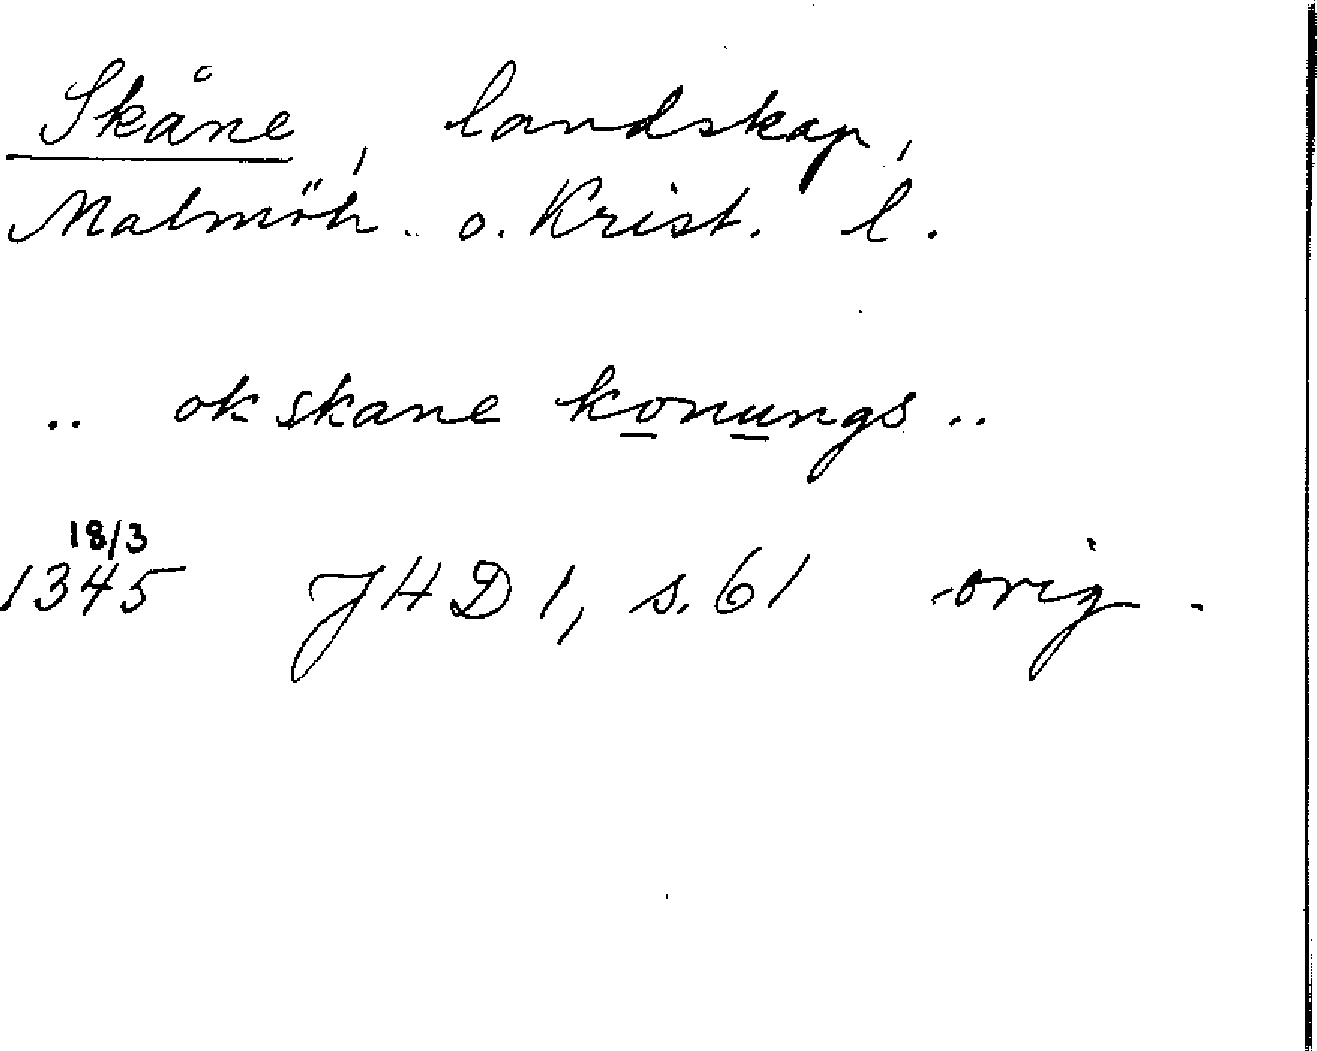 Skåne, landskap,
Malmöh. o. Krist. l.
.. ok skane konungs ..
18/3
1345 JHD 1, s. 61 orig.